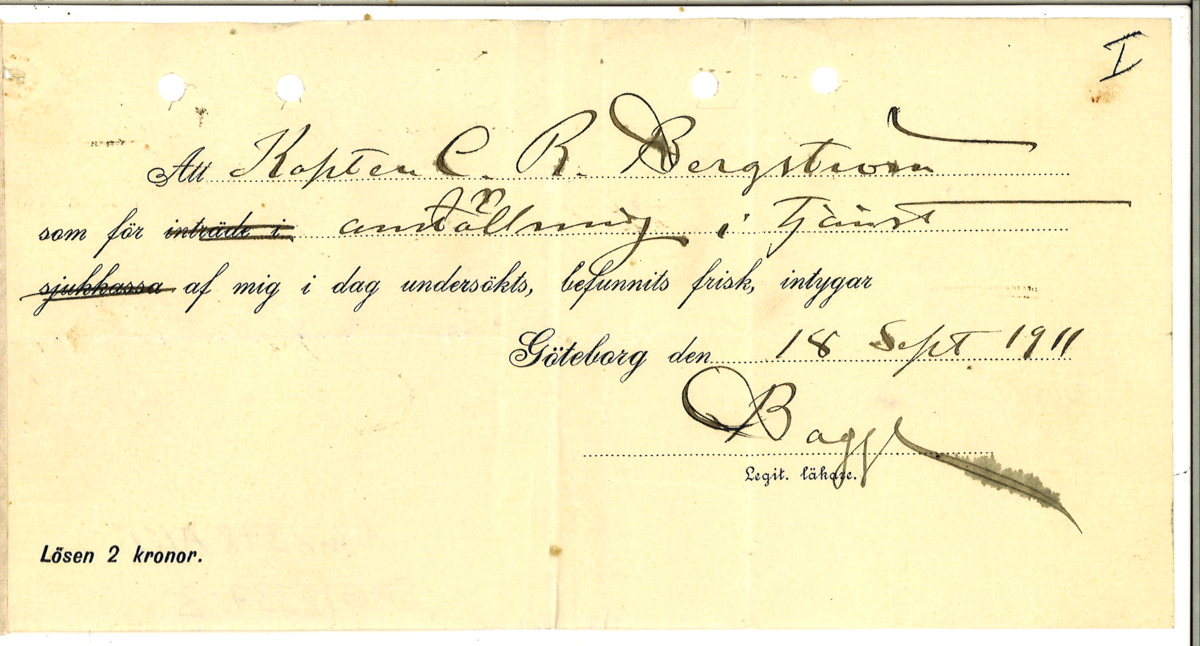 I
Att Kapten C. R. Bergström
som för inträde i anställning i tjänst
sjukkassa af mig i dag undersökts, befunnits frisk, intygar
Göteborg den 18 Sept 1911
Bagge
Legit. läkare.
Lösen 2 kronor.